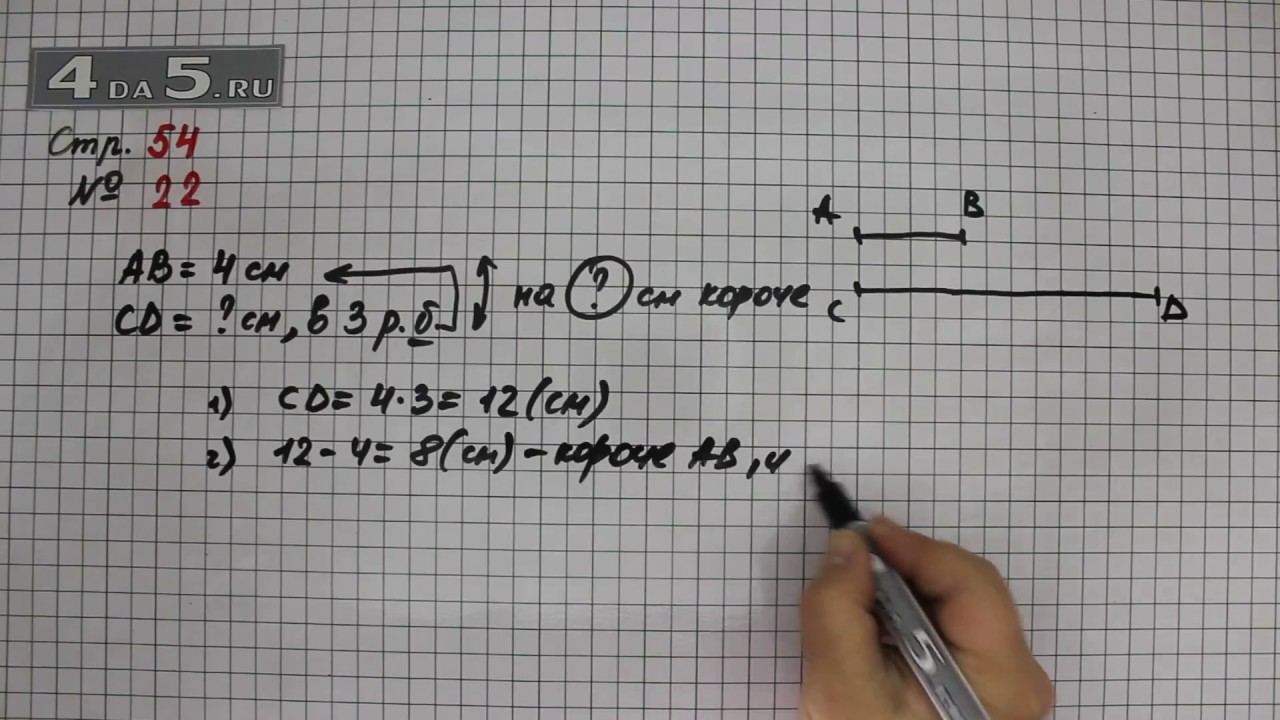 4DA5.RU
Стр. 54
№ 22
AB = 4 см
CD = ? см, в 3 р. б.
на ? см короче
A B
C D
1) CD = 4·3 = 12 (см)
2) 12 - 4 = 8 (см) - короче AB, ч